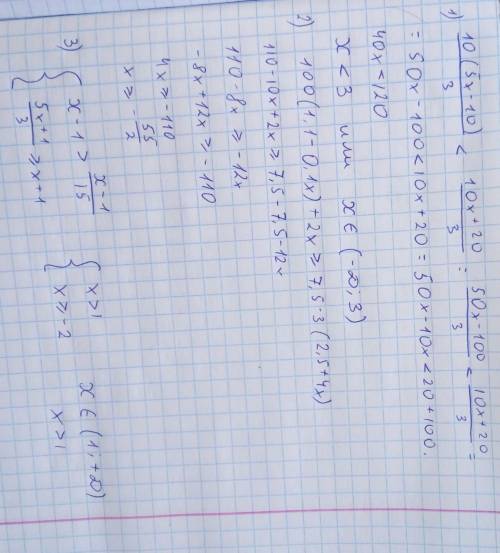 1) 10(5x-10)/3 < 10x+20/3 = 50x-100/3 < 10x+20/3 =
= 50x-100<10x+20 = 50x-10x<20+100.
40x<120
x<3 или x∈(-∞;3)
2) 100(1,1-0,1x)+2x⩾7,5-3(2,5+4x)
110-10x+2x⩾7,5-7,5-12x
110-8x⩾-12x
-8x+12x⩾-110
4x⩾-110
x⩾-55/2
3) { x-1> x-1/15 { x>1 x∈(1,+∞)
{ 5x+1/3 ⩾x+1 { x⩾-2 x>1